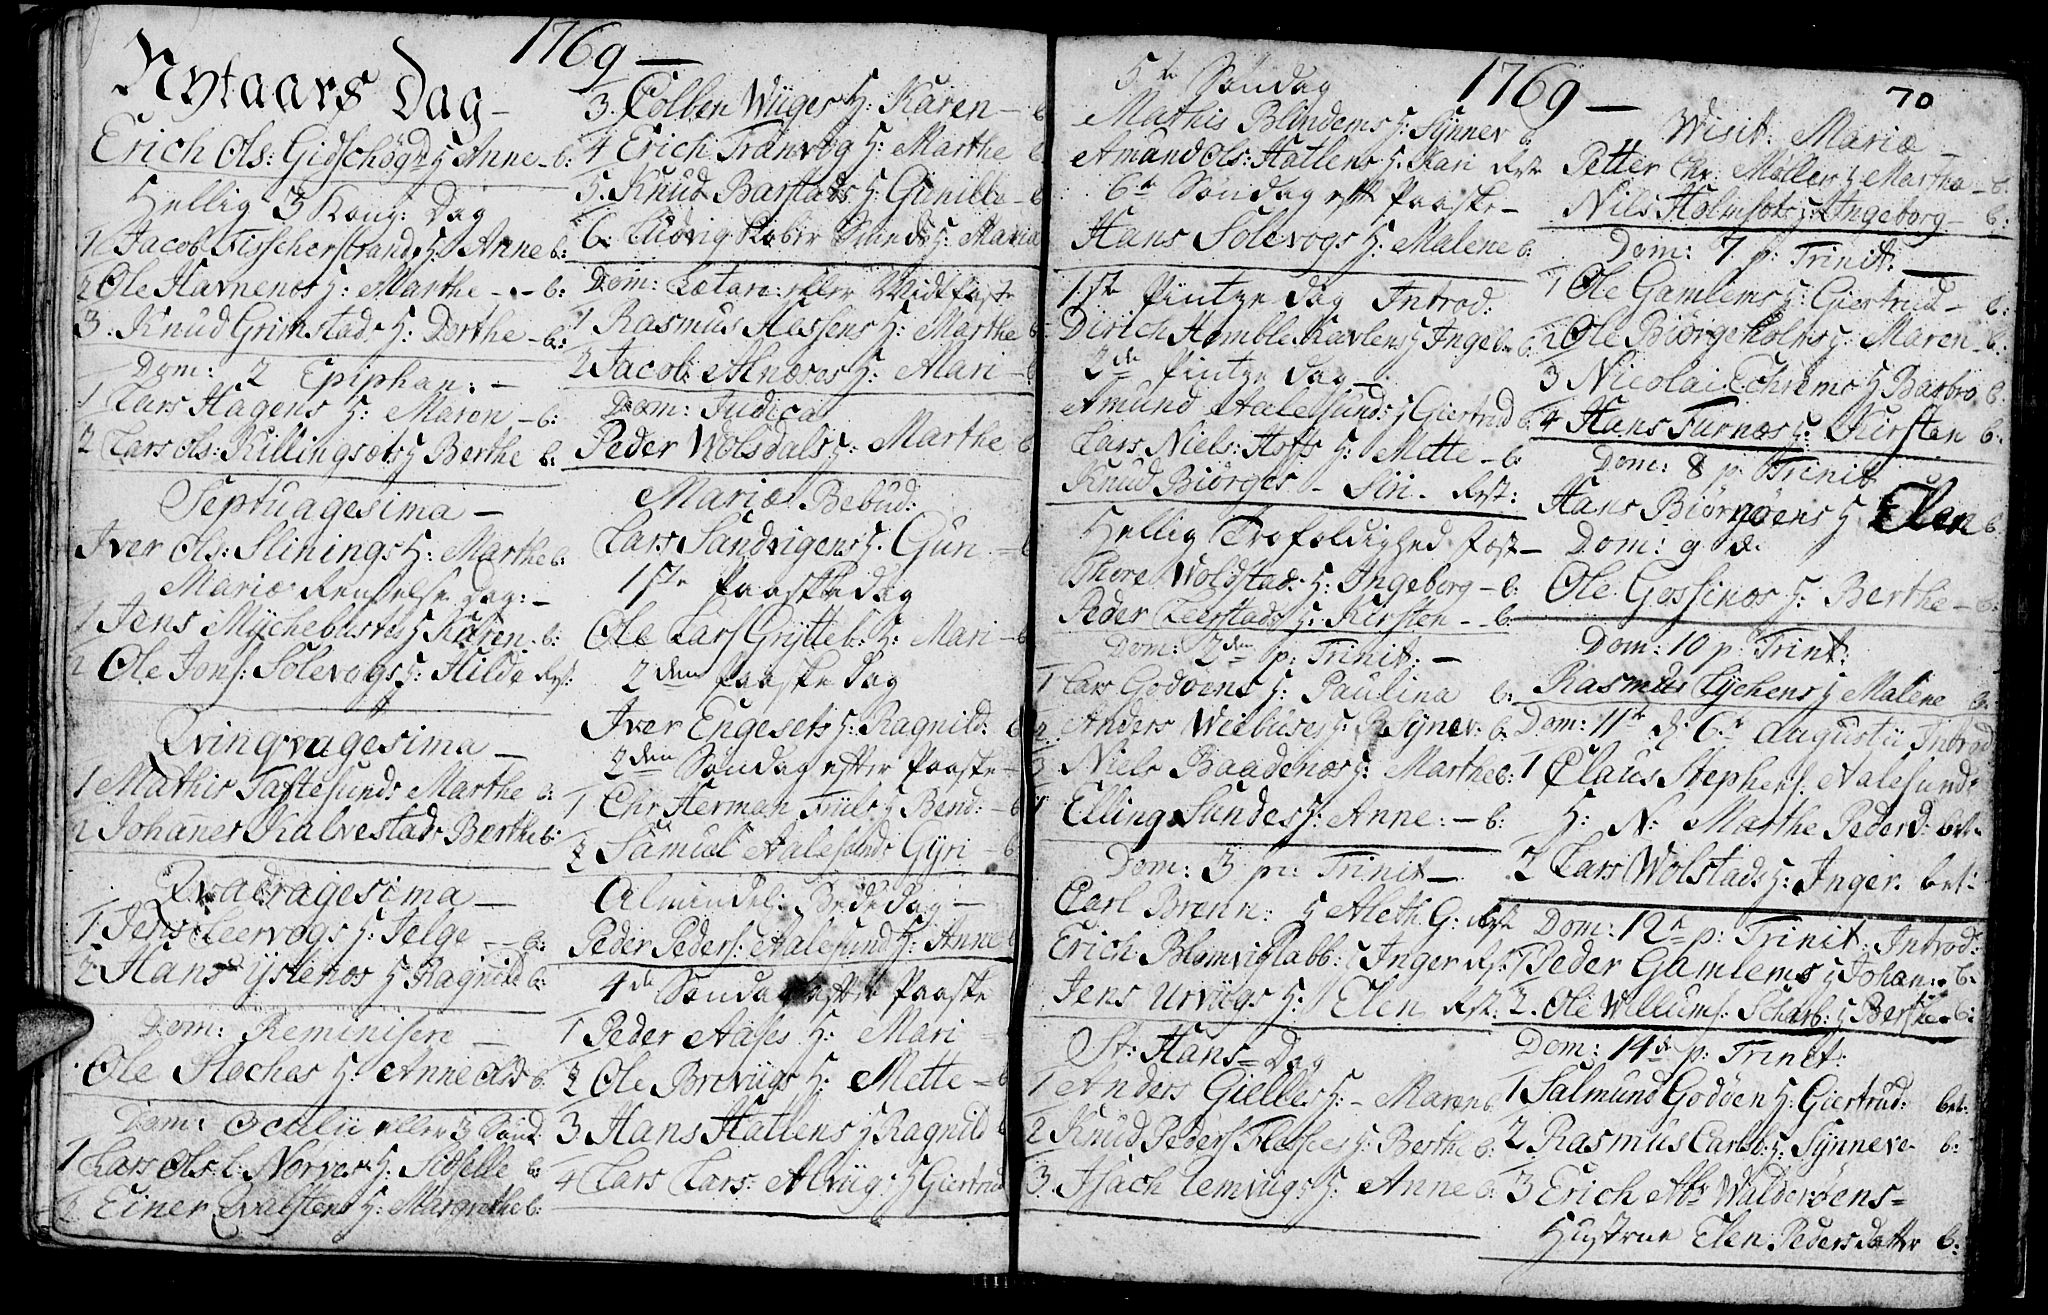 1769 —
Nÿtaars Dag —
Erich Ols: Gidschögd H Anne - b:
Hellig 3 Kong: Dag
1 Jacob Fisscherstrands H: Anne b:
2 Ole Havnenes H: Marthe - - b:
3. Knud Grimstads H: Dorthe - b:
Dom: 2 Epiphan: —
1 Lars Hagens H: Maren - b:
2 Lars Ols: Killingsøts H Berthe b:
Septuagesima —
Iver Ols: Slinings H: Marthe b:
Mariæ Renselse Dag: -
1 Jens Mÿchebustes H Karen. b:
2 Ole Jons: Solevogs H: Hilda
Qvinqvagesima —
1 Mathis Taftesunds Marthe b:
2 Johannes Kalvestads Berthe b:
Qvadragesima —
1 Jens Leervogs H: Jelge - - b:
2 Hans Ystenæs H Ragnild b:
Dom: Reminisere —
Ole Sloches H: Anne Olsd b:
Dom: Oculii eller 3 Sønd:
1 Lars Ols: l: Norver H: Sidselle b:
2 Einer Qvalstens H: Margrethe b:
3. Collen Wiiges H: Karen - b
4 Erich Tranvog H: Marthe b
5. Knud Barstads H: Gunilla - b
6. Ludvig Røbir Sunds H: Maria
Dom: Lætare eller Midtfaste
1 Rasmus Hessens H: Marthe b
2 Jacob Alnæses H: Mari - b
Dom: Judica
Peder Wolsdals H: Marthe b
Mariæ Bebud:
Lars Sandvigens H: Gun - b
1ste Paaskedag
Ole Lars Grÿtteb: H: Mari - b
2den Paaske dag
Iver Engesets H: Ragnild: b
2den Søndag efter Paaske -
1 Chr Herman Friis H Bend: - b
2 Samuel Aalesunds Gÿri - b
Almindel: Bededag —
Peder Peders: Aalesund H: Anne b
4de Søndag efter Paaske
1 Peder Aases H: Mari -
2 Ole Breviigs H: Mette - b
3 Hans Hatlens H Ragnild b
4 Lars Lars: Alviig: H Giertrud
1769 —
70
5te Søndag
Mathis Blindems H: Sÿnnev b:
Amund Ols: Hatlens H: Kari
6te Søndag eft Paaske -
Hans Solevogs H: Malene b:
1ste Pintze dag Introd:
Dirich Humblekaavlens H Ingeb: b:
2de Pintze dag -
Amund Aalesund: H Giertrud b:
Lars Niels: Hoffs H: Mette - b:
Knud Biørges - Siri -
Hellig Trefoldighed fest -
Thore Woldstads H: Ingeborg - b:
Peder Leerstads H: Kirsten - - b:
Dom: 2den p: Trinit: —
1 Lars Godøens H: Paulina b:
2. Anders Weebuses H: Synnev: b:
3 Niels Baadenæs H: Marthe b:
4 Elling Sundes H: Anne: - b:
Dom: 3 p: Trinit —
Carl Brenn: H Aleth G:
Erich Blomvigslabb: H Inger
Jens Urviigs H: Elen
St: Hans = Dag
1 Anders Gielles H: - Maren b:
2 Knud Peders Flesses H: Berthe b:
3. Isach Lemviigs H: Anne b:
Wisit: Mariæ —
Petter Chr: Møllers H Martha - b:
Nils Holmsøts H: Ingeborg - b:
Dom: 7 p: Trinit: —
1 Ole Gamlems H: Giertrud - b:
2 Ole Biørgeholms H: Maren - b:
3 Nicolai Eehrems H Barbro b:
4 Hans Furnæs H: Kirsten b:
Dom: 8 p: Trinit
Hans Biørnøens H Elen b:
Dom: 9 d:
Ole Gossinæs H: Berthe - b:
Dom: 10 p: Trint:
Rasmus Lÿchens H Malene b:
Dom: 11te d 6te Augustii Introd
1 Claus Stephens: Aalesunds
H: N: Marthe Pederd: bet:
2 Lars Wolstads H: Inger. bet:
Dom: 12te p: Trinit: Introd:
1 Peder Gamlems H Johan: b:
2. Ole Willums: Scharb: H Berthe b:
Dom: 14de p: Trinit:
1 Salmund Godøen H: Giertrud: bet:
2 Rasmus Carls: H: Sÿnneve b:
3 Erich Abr Walderøens =
Hustrue Elen Peders datter b: